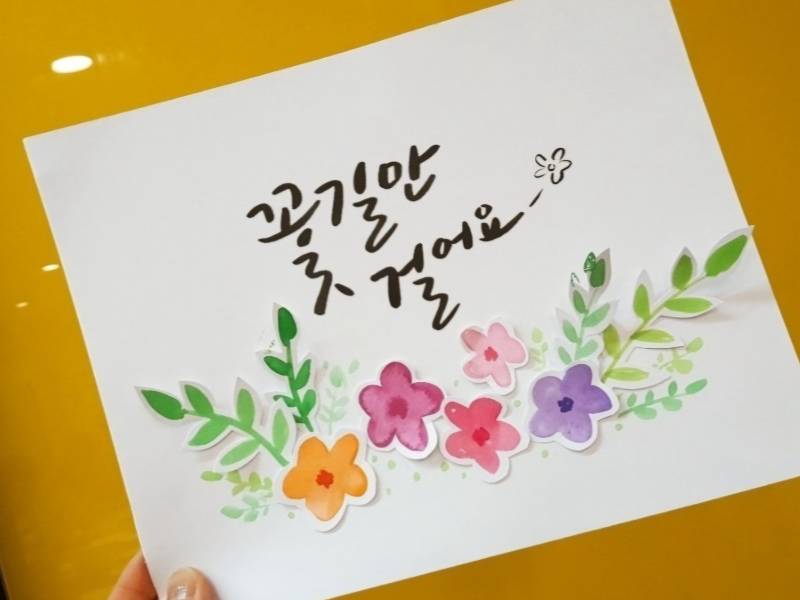 꽃길만
걸어요